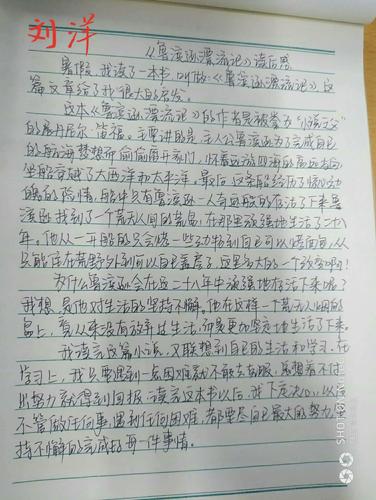 刘洋
《鲁滨逊漂流记》读后感
暑假,我读了一本书,叫做《鲁滨逊漂流记》,这
篇文章给了我很大的启发。
这本《鲁滨逊漂流记》的作者是被誉为"小说之父"
的丹尼尔·笛福。主要讲的是:主人公鲁滨逊为了完成自己
的航海梦想而偷偷离开家门,怀着远游四海的高远志向,
坐船穿越了大西洋和太平洋。最后,这条船经历了惊心动
魄的险情,船中只有鲁滨逊一人奇迹般的存活了下来。鲁
滨逊找到了一个荒无人烟的荒岛,在那里顽强地生活了二十八
年。他从一开始的只会烧一些动物到自己可以烤面包,从
只能住在荒野外到可以自己盖房子,这是多大的一个改变啊!
为什么鲁滨逊会在这二十八年中顽强地存活下来呢?
我想,是他对生活的坚持不懈。他在这样一个荒无人烟的
岛上,看从来没有放弃过生活,而是更加坚定地生活了下来。
我读完这篇小说,又联想到自己的生活和学习。在
学习上,我只要遇到一点困难就不敢去克服,总想着不付
出努力就得到回报。读完这本书以后,我下定决心,以后
不管做任何事,遇到任何困难,都要尽自己最大的努力,坚
持不懈的完成好每一件事情。
SHOT ON